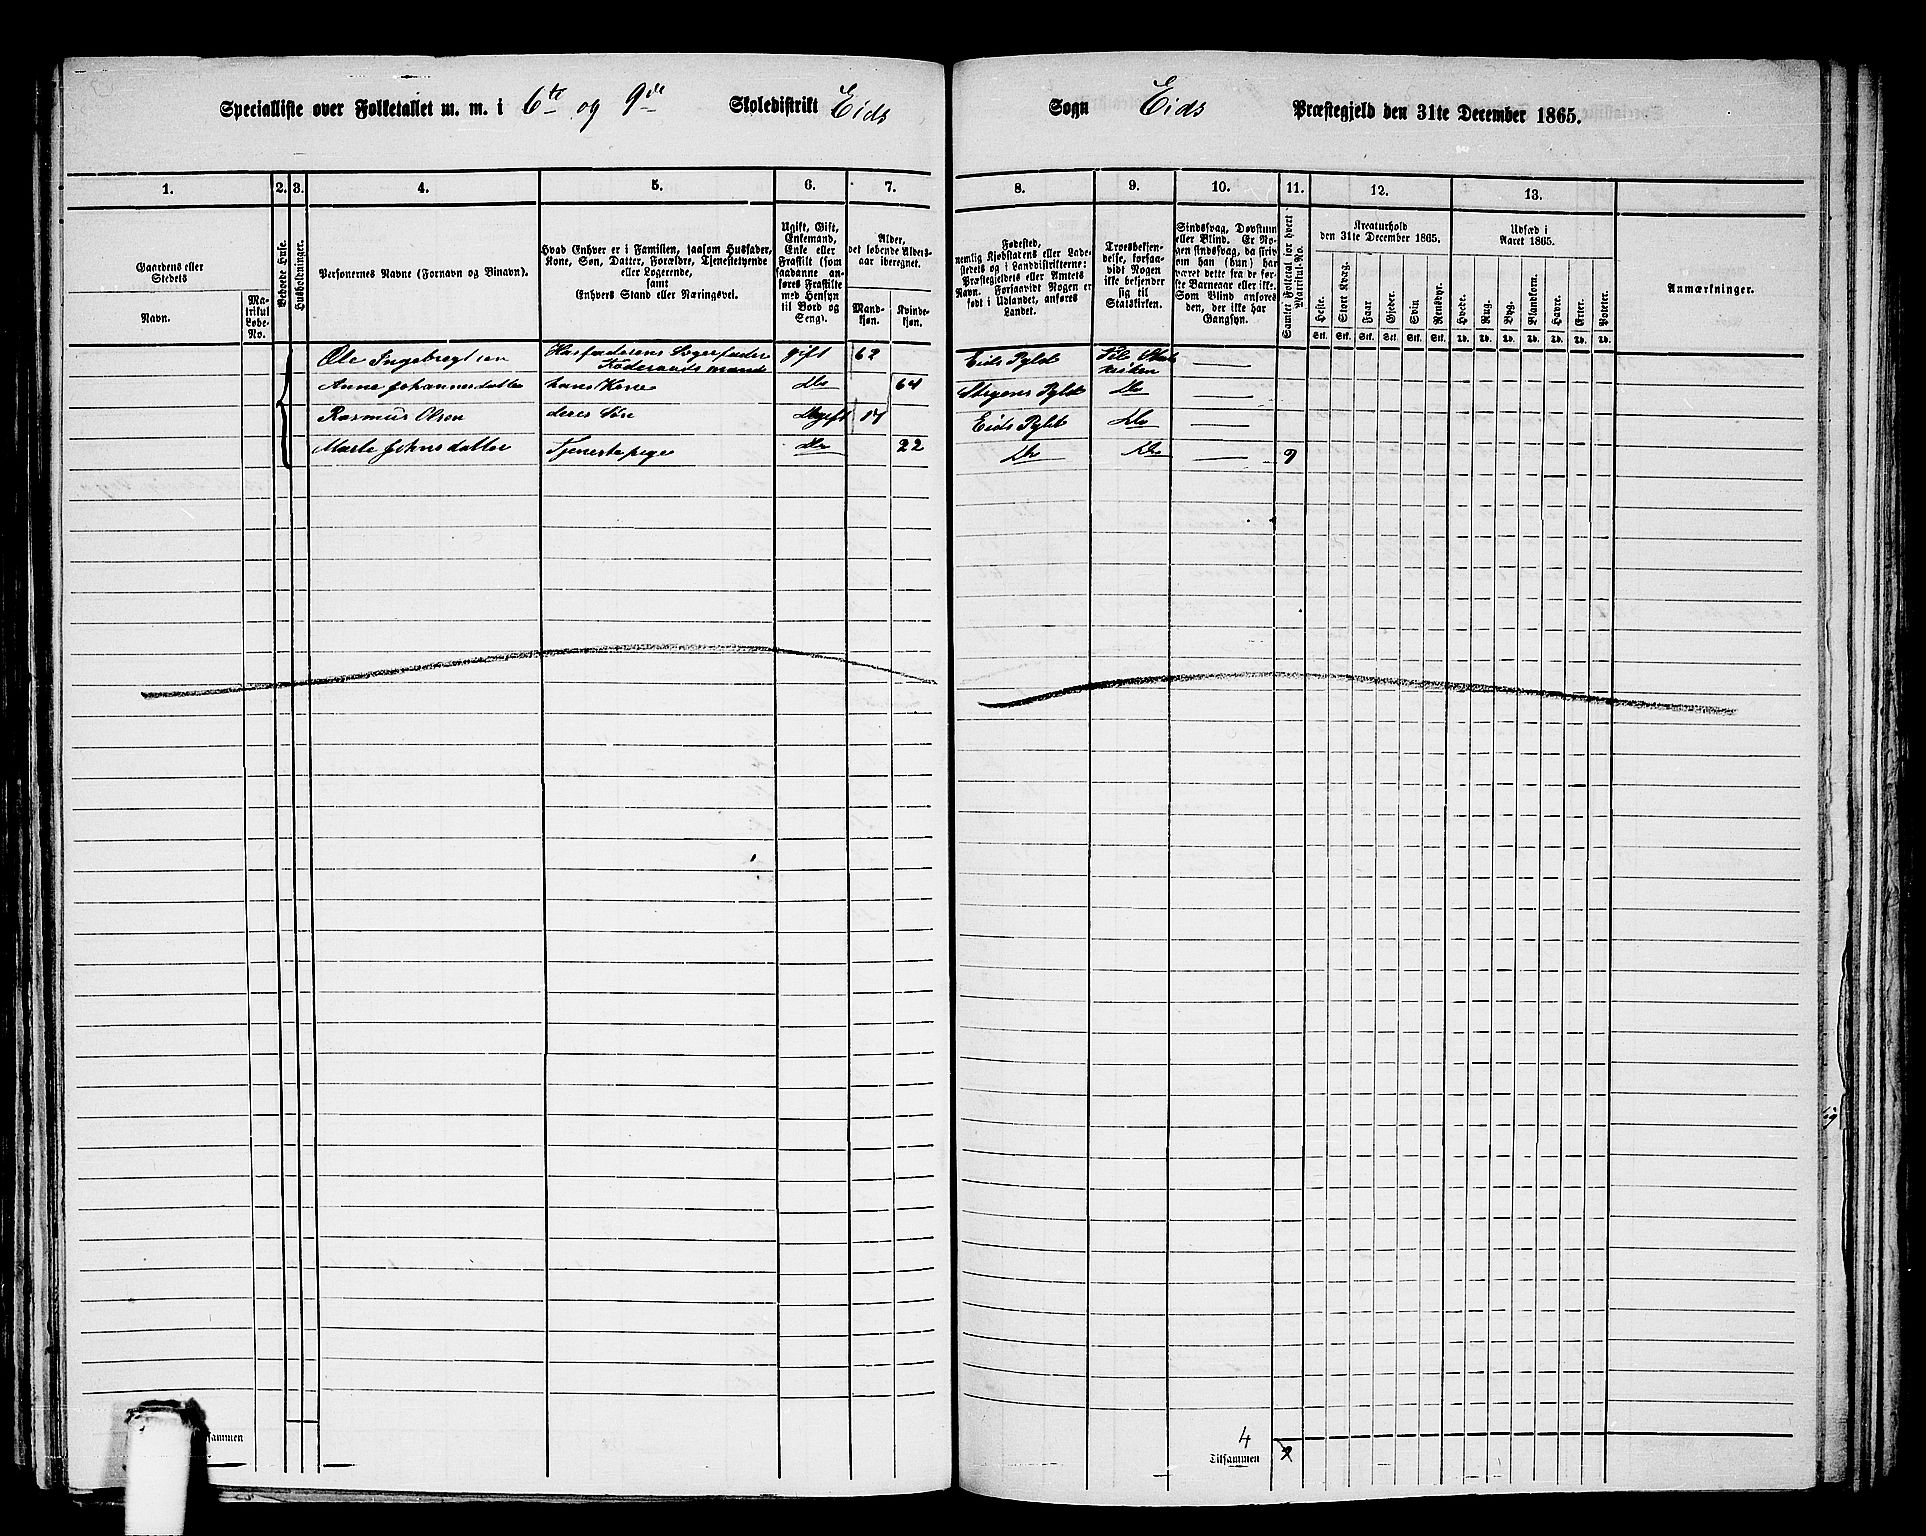 Specialliste over Folketallet m. m. i 6te og 9de Skoledistrikt Eids Sogn Eids Præstegjeld den 31te December 1865.
1. 2. 3. 4. 5. 6. 7. 8. 9. 10. 11. 12. 13.
Gaardens eller
Stedets
Navn.
Ma-
trikul
Løbe-
No.
Beboede Huse.
Husholdninger.
Personernes Navne (Fornavn og Binavn).
Hvad Enhver er i Familien, saasom Husfader,
Kone, Søn, Datter, Forældre, Tjenestetyende
eller Logerende,
samt
Enhvers Stand eller Næringsvei.
Ugift, Gift,
Enkemand,
Enke eller
Fraskilt (som
saadanne an-
føres Fraskilte
med Hensyn
til Bord og
Seng).
Alder,
det løbende Alders-
aar iberegnet.
Mand-
kjøn.
Kvinde-
kjøn.
Fødested,
nemlig Kjøbstadens eller Lade-
stedets og i Landdistrikterne:
Præstegjeldets eller Amtets
Navn. Forsaavidt Nogen er
født i Udlandet, anføres
Landet.
Troesbekjen-
delse, forsaa-
vidt Nogen
ikke bekjender
sig til
Statskirken.
Sindssvag, Døvstum
eller Blind. Er No-
gen sindssvag, da skriv
om han (hun) har
været dette fra de før-
ste Barneaar eller ikke.
Som Blind anføres
den, der ikke har
Gangsyn.
Samlet Folketal for hvert
Matrikul-No.
Kreaturhold
den 31te December 1865.
Heste.
Stort Kvæg.
Faar
Gjeder.
Svin
Rensdyr.
Stk. Stk. Stk. Stk. Stk. Stk.
Udsæd i
Aaret 1865.
Hvede.
Rug.
Byg.
Blandkorn.
Havre.
Erter.
Poteter.
Td. Td. Td. Td. Td. Td. Td.
Anmærkninger.
Ole Ingebregtsen gift 62 Eids Pgld
Anne Johannesdatter hans Kone Do 64 Pgld Do
Rasmus Olsen deres Søn Ugift 17 Eids Pgld Do
Marte Johnsdatter Tjenestepige Do 22 Do Do 9
4
Tilsammen